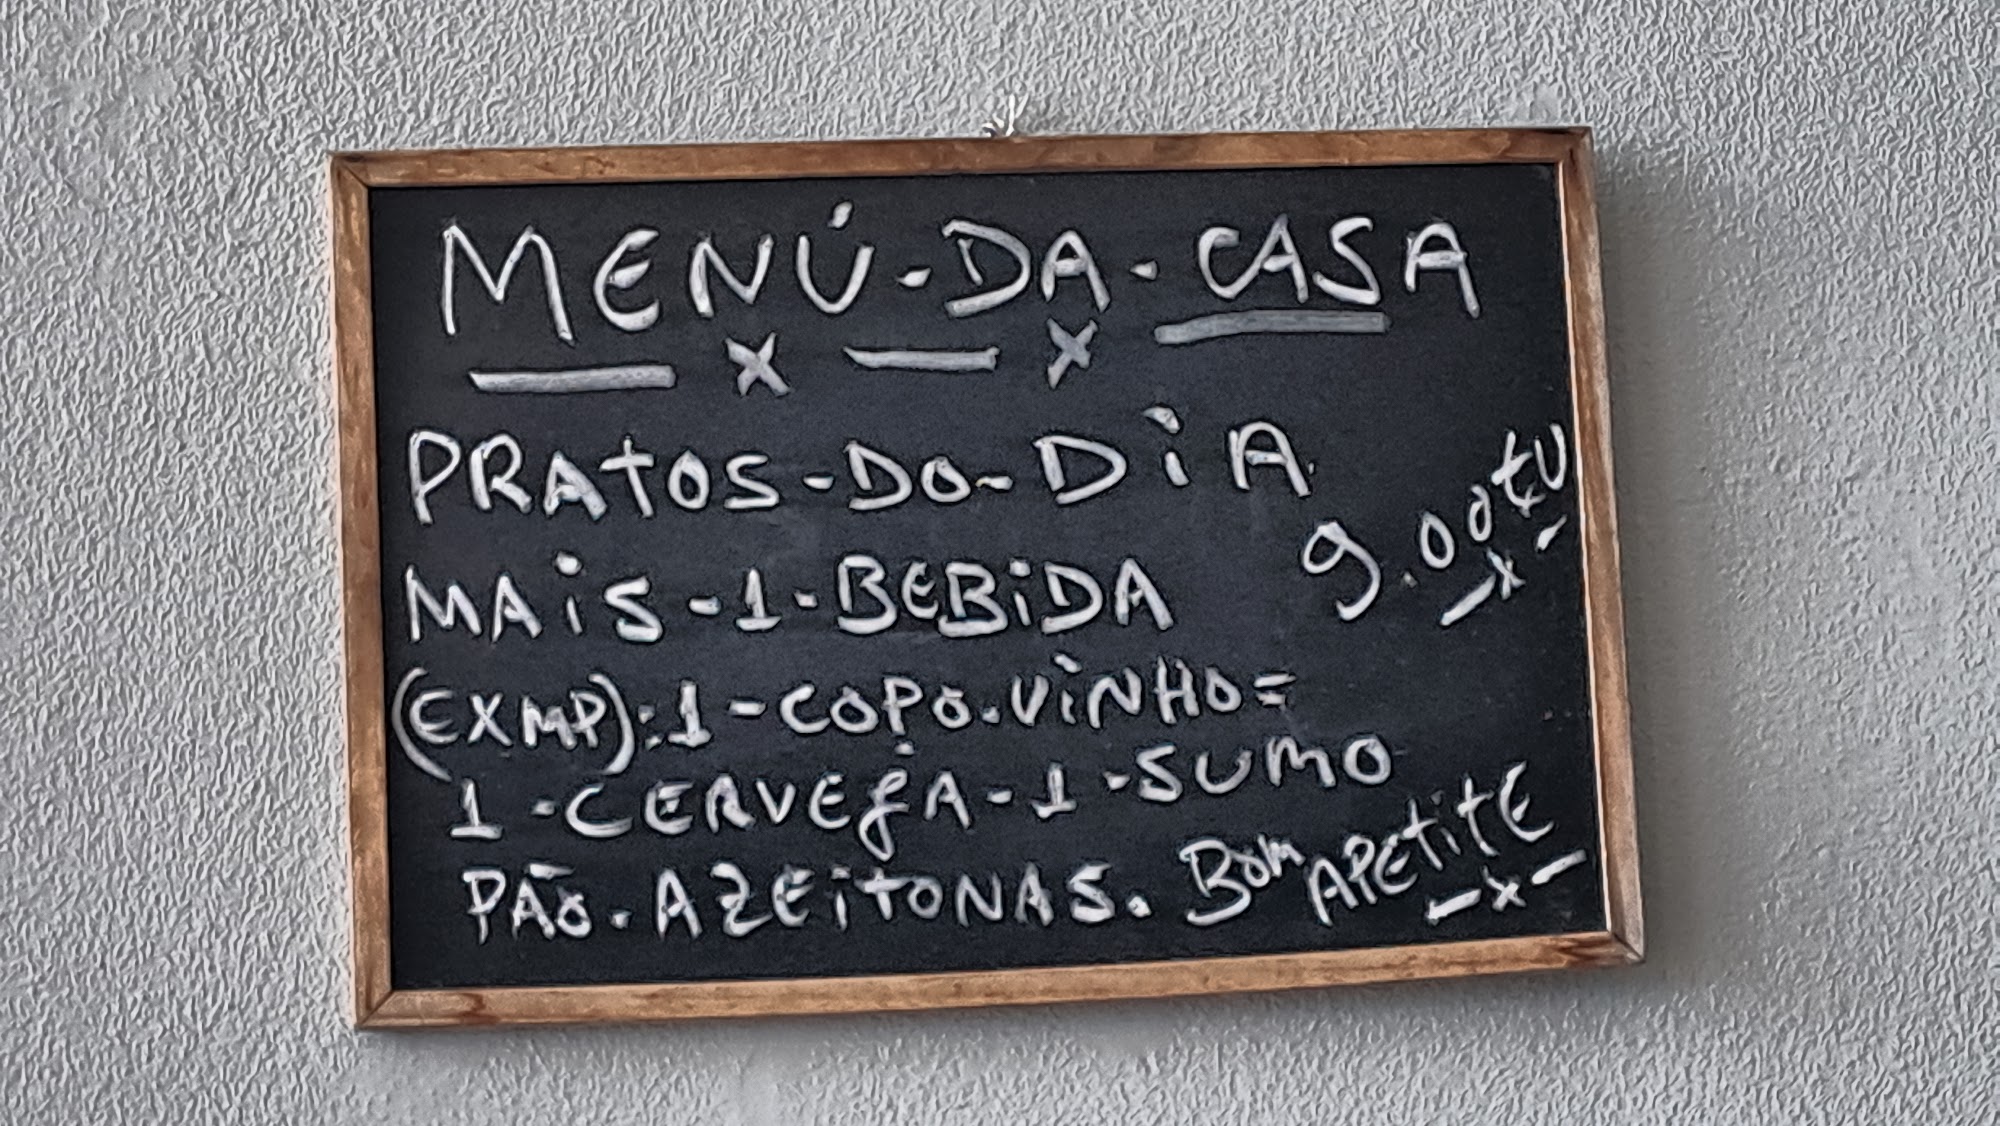 MENÚ-DA-CASA
PRATOS-DO-DIA.
9.00
MAIS-1-BEBIDA
(EXMP):1-COPO.VINHO=
1-CERVEJA-1-SUMO
PÃO.AZEITONAS.BOM APETITE